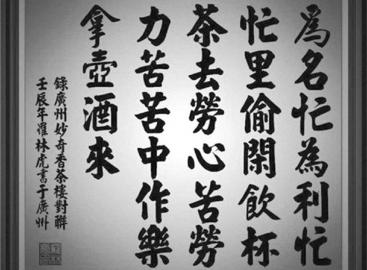 爲名忙為利忙
忙里偷閑飲杯
茶去勞心苦勞
力苦苦中作樂
拿壺酒來
錄廣州妙奇香茶樓對聯
壬辰年羅林虎書于廣州